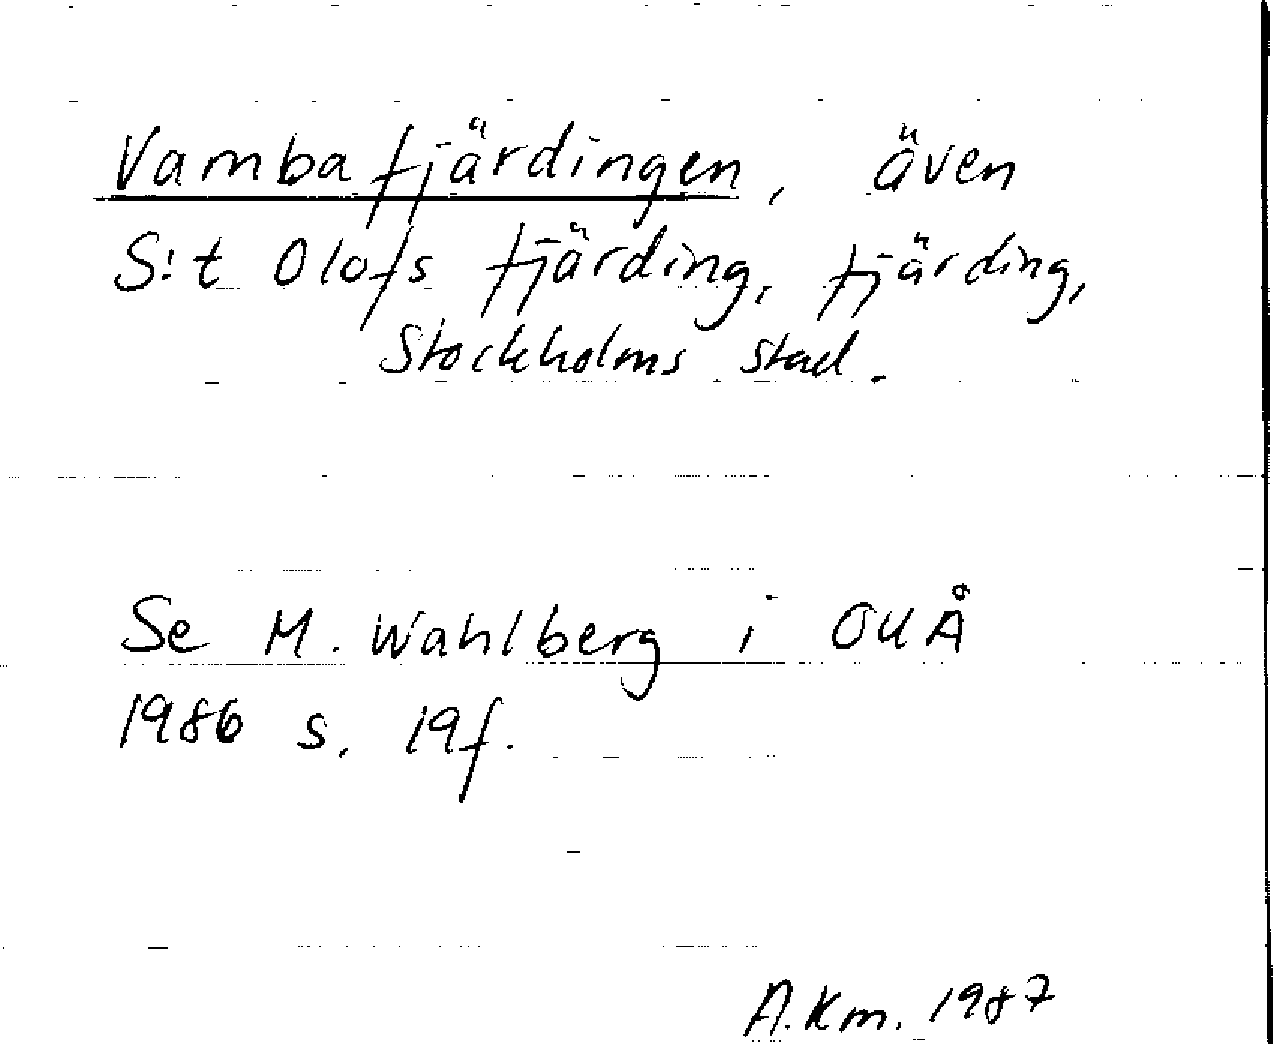 Vambafjärdingen, även
S:t Olofs fjärding, fjärding,
Stockholms stad.
Se M. Wahlberg i OUÅ
1986 s. 19f.
A.Km. 1987